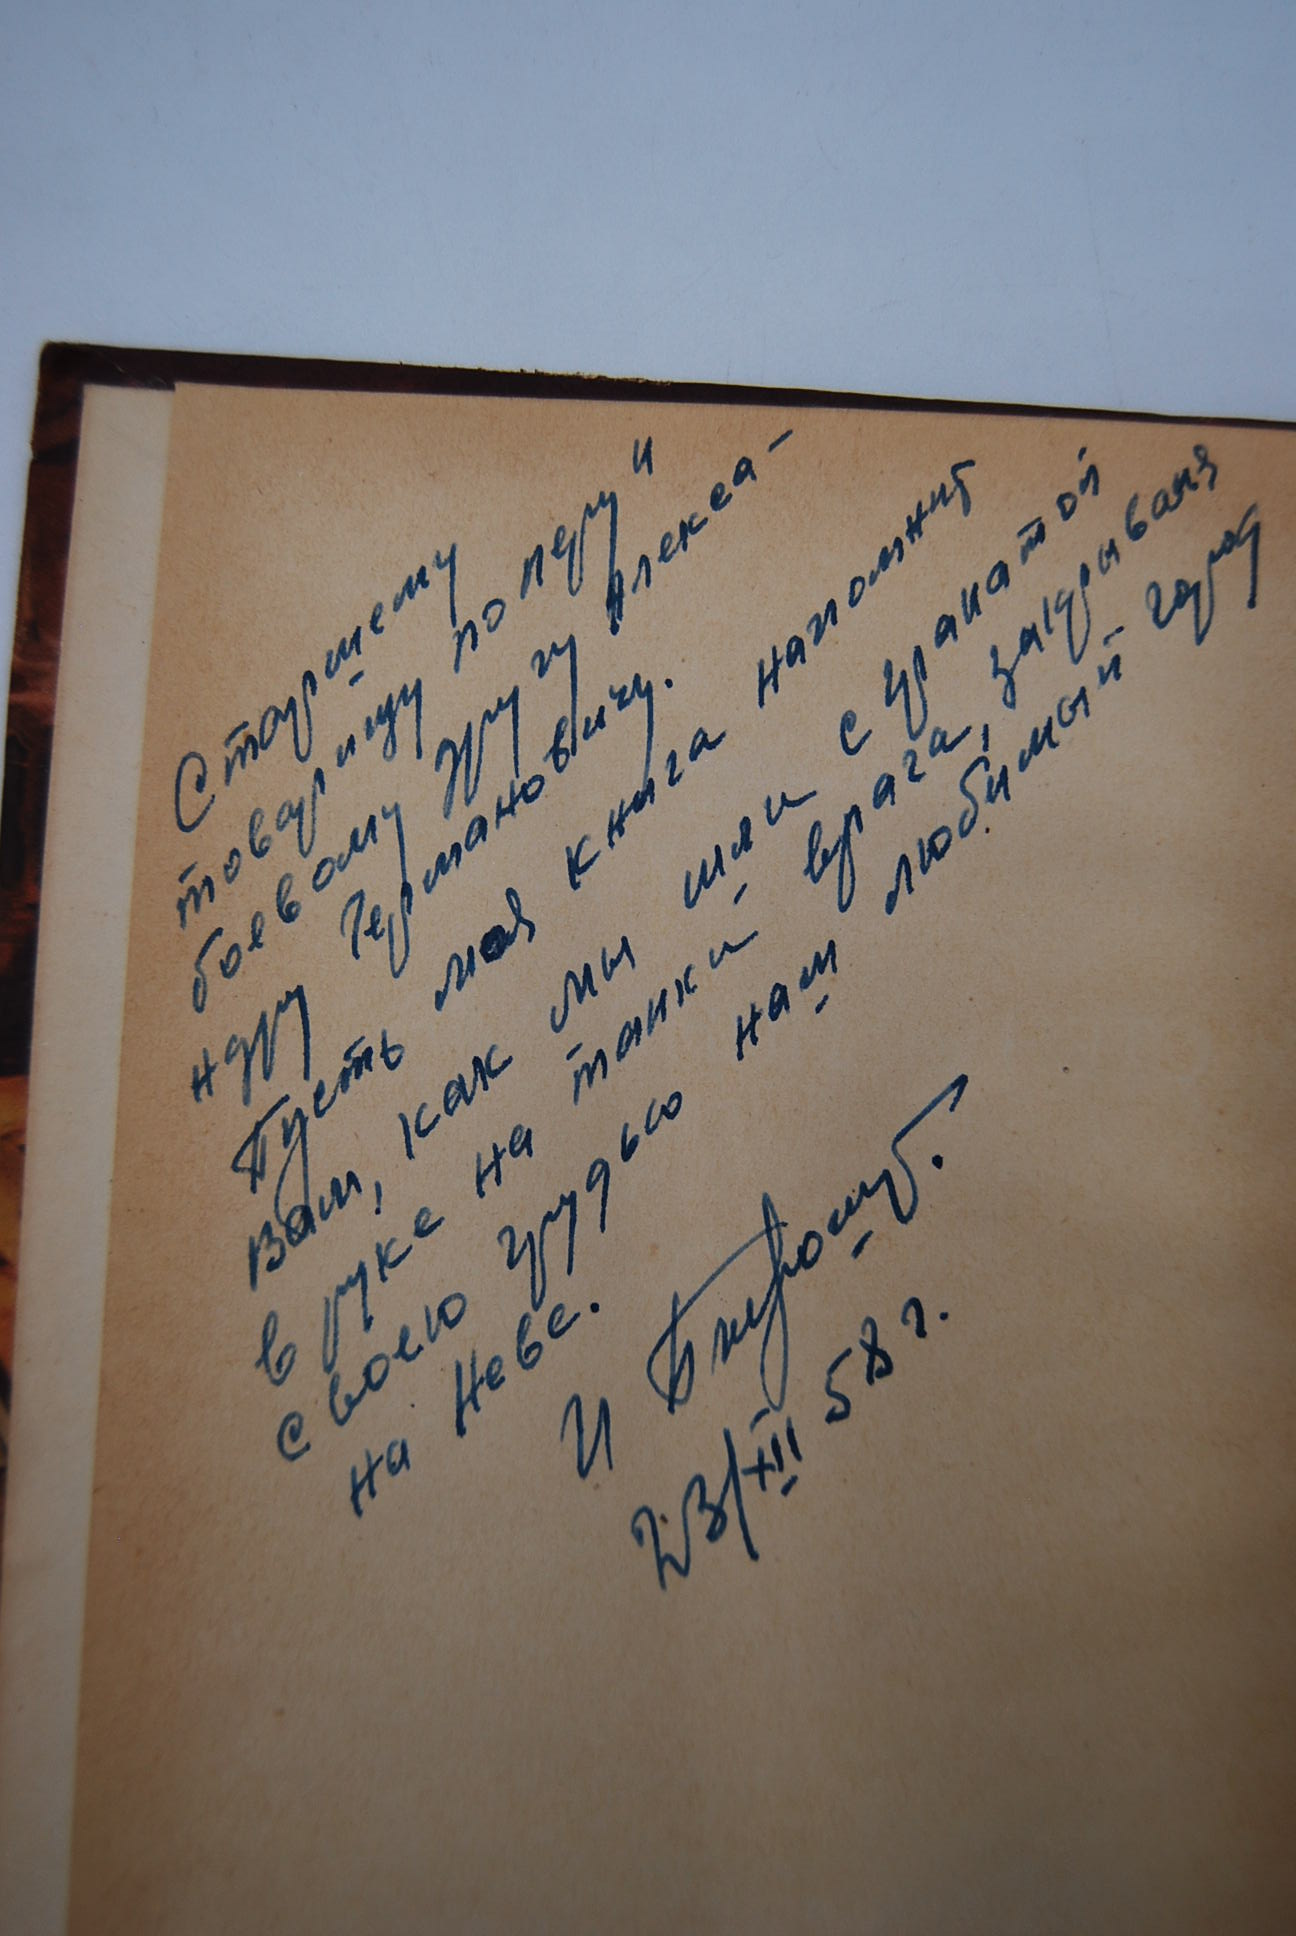 Старшему
товарищу по перу и
боевому другу Алекса-
ндру Германовичу.
Пусть моя книга напомнит
Вам, как мы шли с гранатой
в руке на танки врага, закрывая
своею грудью нам любимый город
на Неве.
И
23/XII 58 г.